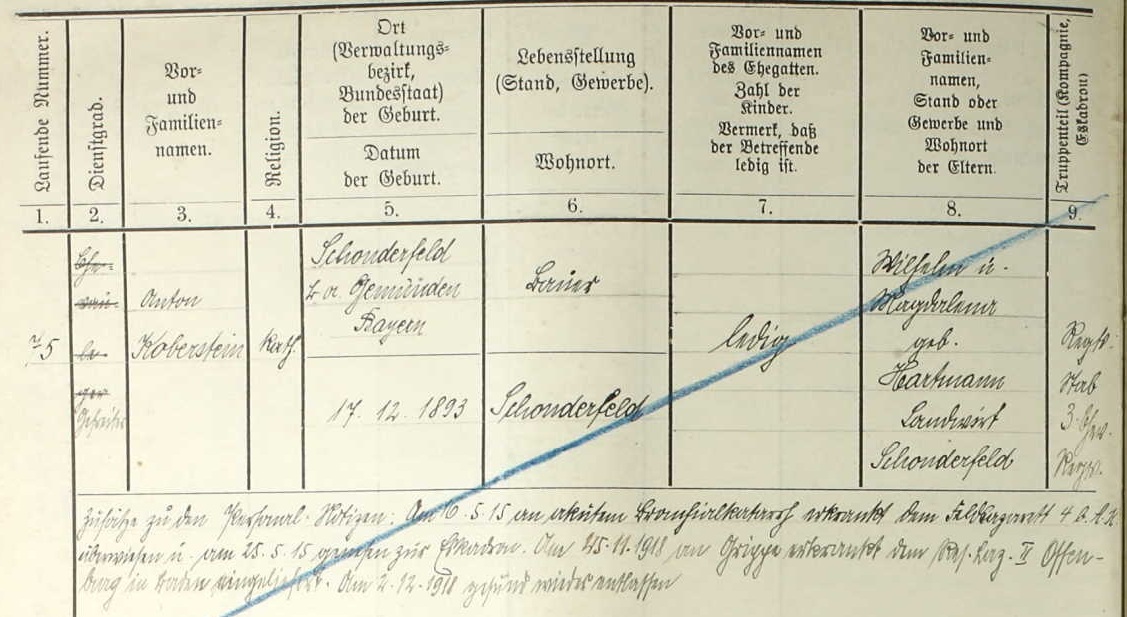 Laufende Nummer.
Dienstgrad.
Vor-
und
Familien-
namen.
Religion.
Ort
(Verwaltungs-
bezirk,
Bundesstaat)
der Geburt.
Datum
der Geburt.
Lebensstellung
(Stand, Gewerbe).
Wohnort.
Vor- und
Familiennamen
des Ehegatten.
Zahl der
Kinder.
Vermerk, daß
der Betreffende
ledig ist.
Vor- und
Familien-
namen,
Stand oder
Gewerbe und
Wohnort
der Eltern.
Truppenteil (Kompagnie,
Eskadron)
1. 2. 3. 4. 5. 6. 7. 8. 9.
75
Che-
vau-
le-
ger
Gefreiter
Anton
Koberstein
kath.
Schonderfeld
b.a. Gemünden
Bayern
17. 12. 1893
Bauer
Schonderfeld
ledig
Wilhelm u.
Magdalena
geb.
Hartmann
Landwirt
Schonderfeld
Regts.
Stab
3. Chev.
Regts.
Zusätze zu den Personal-Notizen: Am 6.5.15 an akutem Bronchialkatarrh erkrankt dem Feldlazarett 4 b.A.K.
überwiesen u. am 25.5.15 genesen zur Eskadron. Am 25.11.1918 an Grippe erkrankt dem Res. Laz. II Offen-
burg in Baden eingeliefert. Am 2.12.1918 gesund wieder entlassen